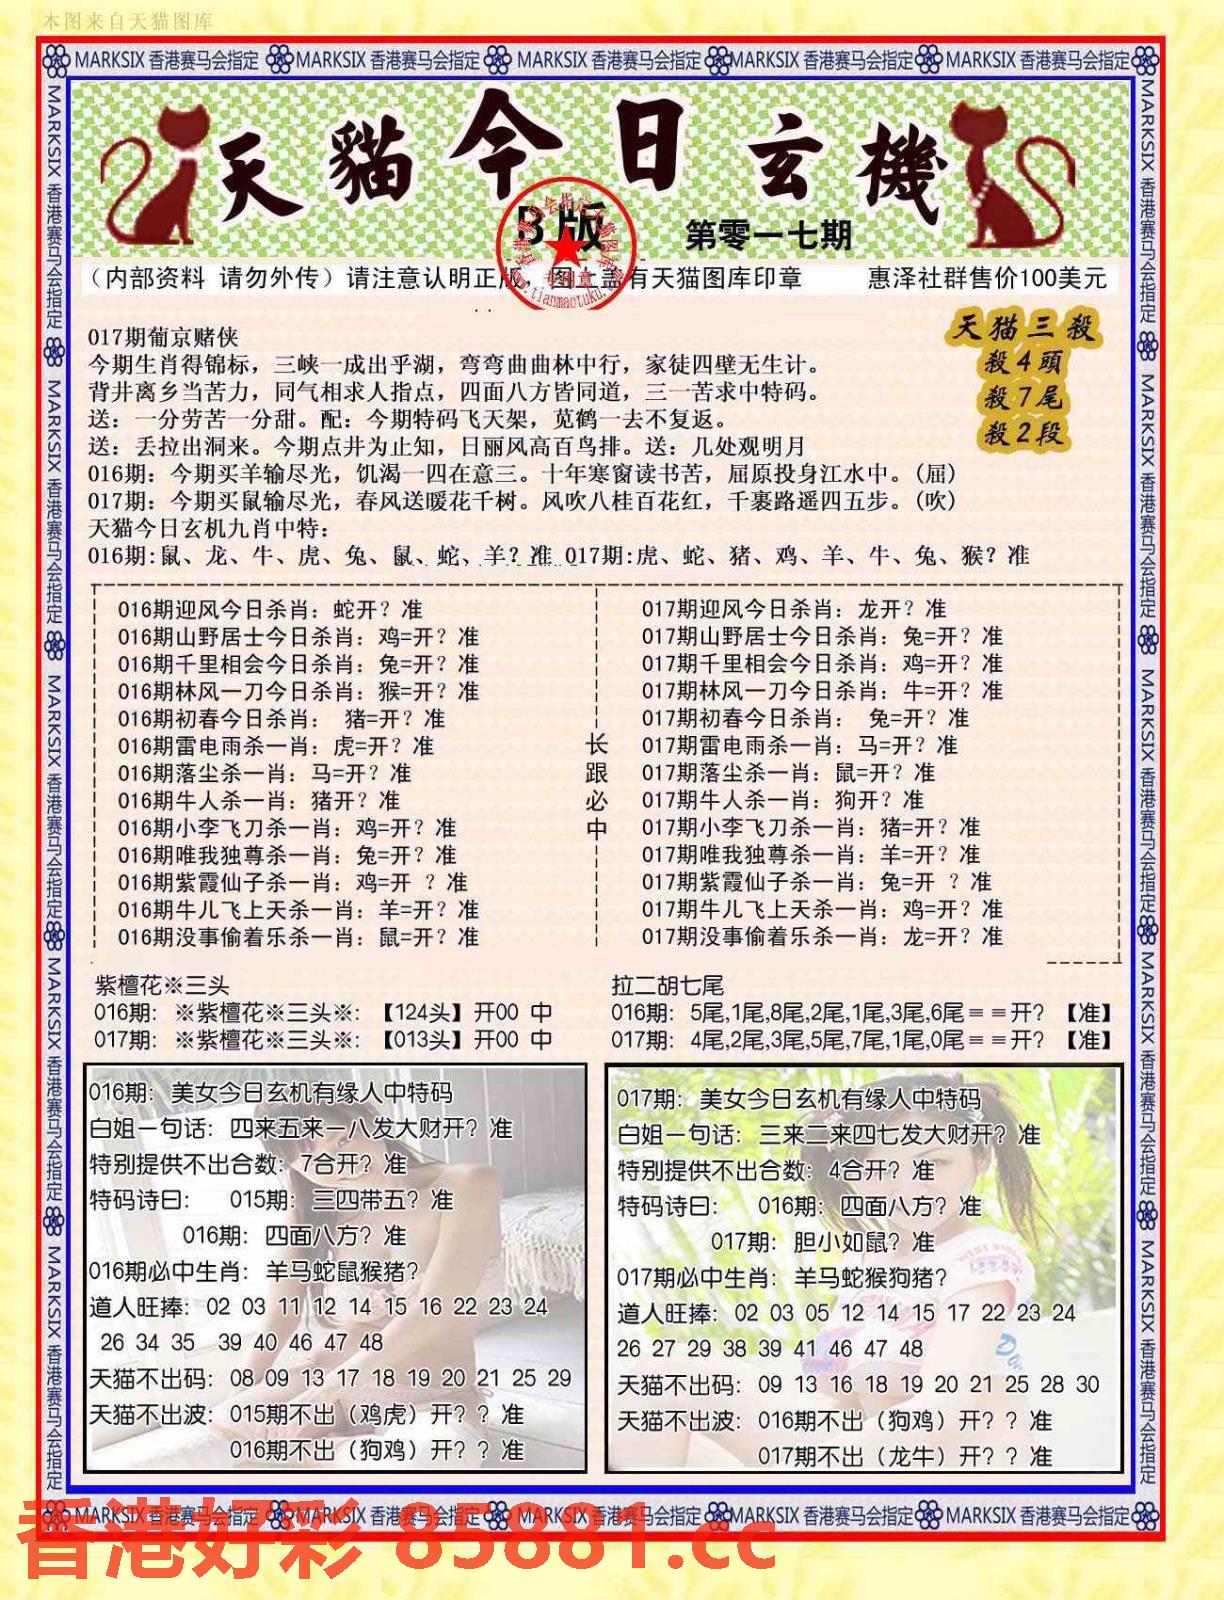 本图来自天猫图库
MARKSIX 香港赛马会指定 MARKSIX 香港赛马会指定 MARKSIX 香港赛马会指定 MARKSIX 香港赛马会指定 MARKSIX 香港赛马会指定
天貓今日玄機
B版
第零一七期
（内部资料 请勿外传）请注意认明正版，图上盖有天猫图库印章 惠泽社群售价100美元
天猫三殺
殺4頭
殺7尾
殺2段
017期葡京赌侠
今期生肖得锦标，三峡一成出乎湖，弯弯曲曲林中行，家徒四壁无生计。
背井离乡当苦力，同气相求人指点，四面八方皆同道，三一苦求中特码。
送：一分劳苦一分甜。配：今期特码飞天架，苋鹤一去不复返。
送：丢拉出洞来。今期点井为止知，日丽风高百鸟排。送：几处观明月
016期：今期买羊输尽光，饥渴一四在意三。十年寒窗读书苦，屈原投身江水中。(屈)
017期：今期买鼠输尽光，春风送暖花千树。风吹八桂百花红，千裹路遥四五步。(吹)
天猫今日玄机九肖中特：
016期:鼠、龙、牛、虎、兔、鼠、蛇、羊？准 017期:虎、蛇、猪、鸡、羊、牛、兔、猴？准
016期迎风今日杀肖：蛇开？准
016期山野居士今日杀肖：鸡=开？准
016期千里相会今日杀肖：兔=开？准
016期林风一刀今日杀肖：猴=开？准
016期初春今日杀肖： 猪=开？准
016期雷电雨杀一肖：虎=开？准
016期落尘杀一肖：马=开？准
016期牛人杀一肖：猪开？准
016期小李飞刀杀一肖：鸡=开？准
016期唯我独尊杀一肖：兔=开？准
016期紫霞仙子杀一肖：鸡=开 ？准
016期牛儿飞上天杀一肖：羊=开？准
016期没事偷着乐杀一肖：鼠=开？准
长跟必中
017期迎风今日杀肖：龙开？准
017期山野居士今日杀肖：兔=开？准
017期千里相会今日杀肖：鸡=开？准
017期林风一刀今日杀肖：牛=开？准
017期初春今日杀肖： 兔=开？准
017期雷电雨杀一肖：马=开？准
017期落尘杀一肖：鼠=开？准
017期牛人杀一肖：狗开？准
017期小李飞刀杀一肖：猪=开？准
017期唯我独尊杀一肖：羊=开？准
017期紫霞仙子杀一肖：兔=开 ？准
017期牛儿飞上天杀一肖：鸡=开？准
017期没事偷着乐杀一肖：龙=开？准
紫檀花※三头
016期：※紫檀花※三头※：【124头】开00 中
017期：※紫檀花※三头※：【013头】开00 中
拉二胡七尾
016期：5尾,1尾,8尾,2尾,1尾,3尾,6尾＝＝开？【准】
017期：4尾,2尾,3尾,5尾,7尾,1尾,0尾＝＝开？【准】
016期：美女今日玄机有缘人中特码
白姐一句话：四来五来一八发大财开？准
特别提供不出合数：7合开？准
特码诗曰： 015期：三四带五？准
016期：四面八方？准
016期必中生肖：羊马蛇鼠猴猪？
道人旺捧：02 03 11 12 14 15 16 22 23 24
26 34 35 39 40 46 47 48
天猫不出码：08 09 13 17 18 19 20 21 25 29
天猫不出波：015期不出（鸡虎）开？？准
016期不出（狗鸡）开？？准
017期：美女今日玄机有缘人中特码
白姐一句话：三来二来四七发大财开？准
特别提供不出合数：4合开？准
特码诗曰： 016期：四面八方？准
017期：胆小如鼠？准
017期必中生肖：羊马蛇猴狗猪？
道人旺捧：02 03 05 12 14 15 17 22 23 24
26 27 29 38 39 41 46 47 48
天猫不出码：09 13 16 18 19 20 21 25 28 30
天猫不出波：016期不出（狗鸡）开？？准
017期不出（龙牛）开？？准
MARKSIX 香港赛马会指定 MARKSIX 香港赛马会指定 MARKSIX 香港赛马会指定 MARKSIX 香港赛马会指定 MARKSIX 香港赛马会指定
香港好彩 85881.cc
MARKSIX 香港赛马会指定 MARKSIX 香港赛马会指定 MARKSIX 香港赛马会指定 MARKSIX 香港赛马会指定 MARKSIX 香港赛马会指定
MARKSIX 香港赛马会指定 MARKSIX 香港赛马会指定 MARKSIX 香港赛马会指定 MARKSIX 香港赛马会指定 MARKSIX 香港赛马会指定